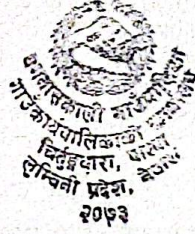 बगनासकाली गाउँपालिका
गाउँकार्यपालिकाको
चिर्तुङ्गधारा, पाल्पा
लुम्बिनी प्रदेश, नेपाल
२०७३